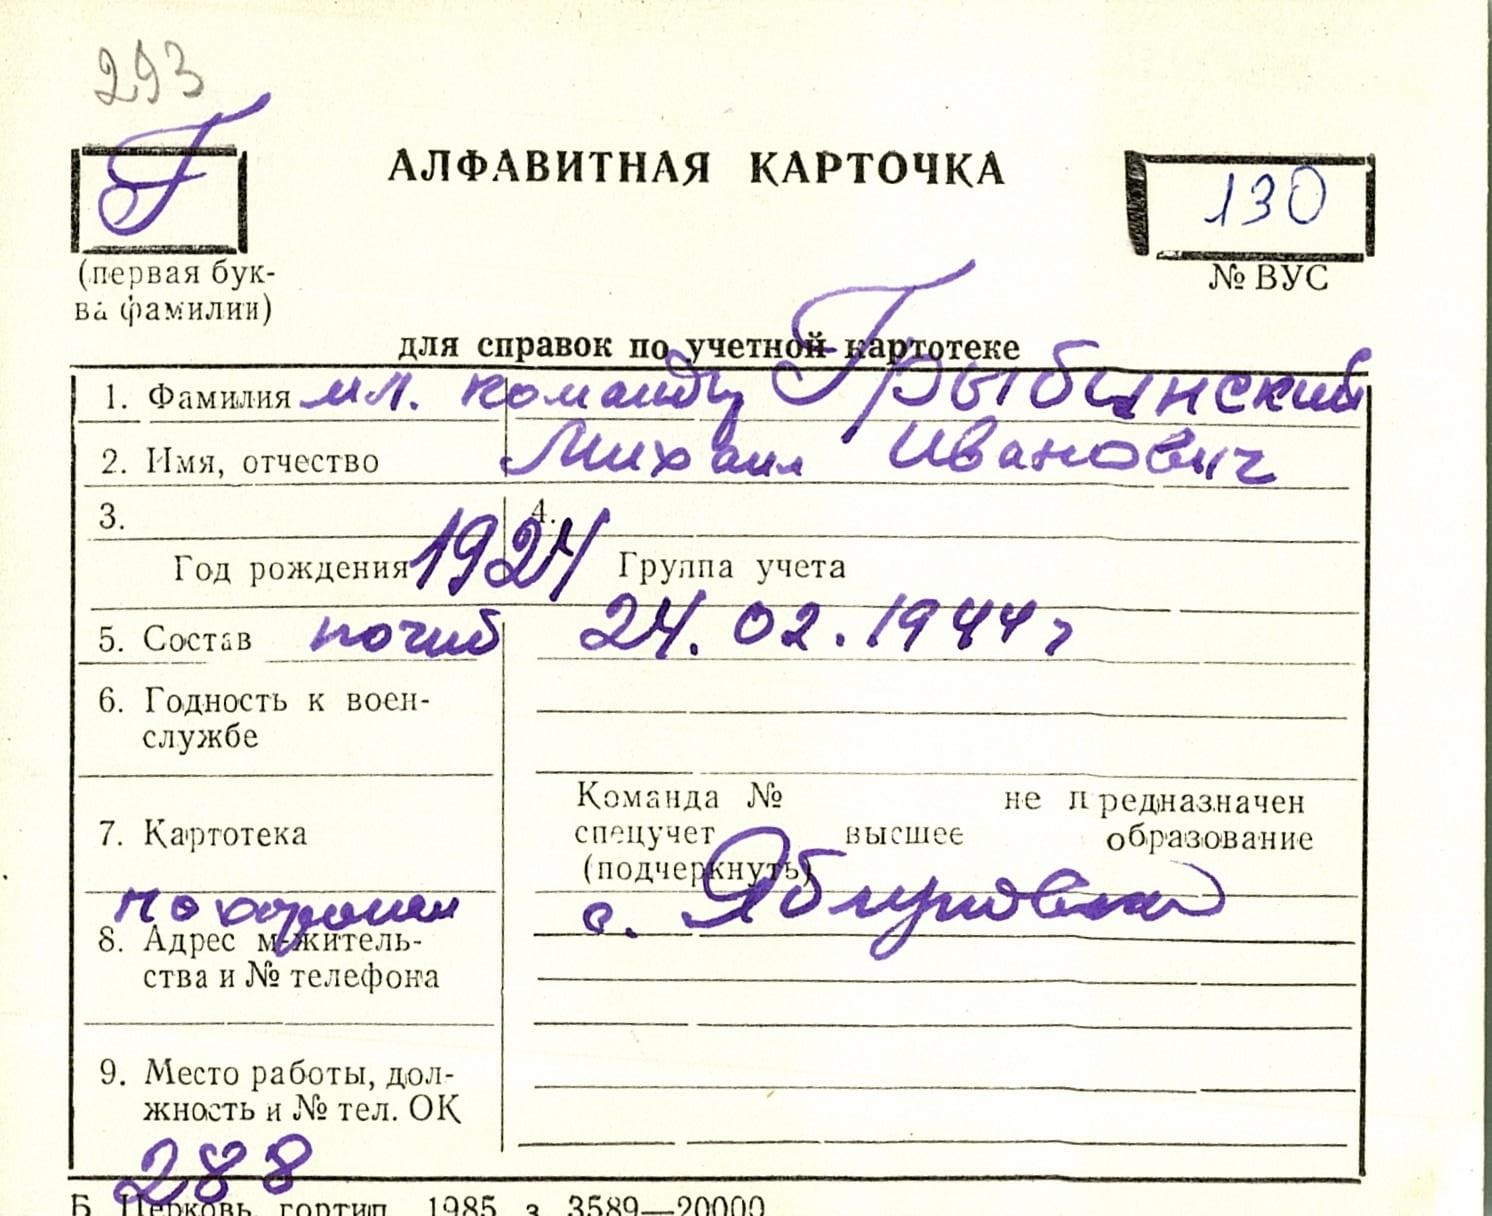 293
Г
АЛФАВИТНАЯ КАРТОЧКА
130
(первая бук-
ва фамилии)
№ ВУС
для справок по учетной картотеке
1. Фамилия мл. команд Грыбинский
2. Имя, отчество Михаил Иванович
3. 4.
Год рождения 1924 Группа учета
5. Состав погиб 24.02.1944 г
6. Годность к воен-
службе
Команда № не предназначен
7. Картотека спецучет высшее образование
(подчеркнуть)
похоронен с. Яблуновка
8. Адрес м-житель-
ства и № телефона
9. Место работы, дол-
жность и № тел. ОК
288
Б. Церковь, гортип. 1985 з. 3589—20000